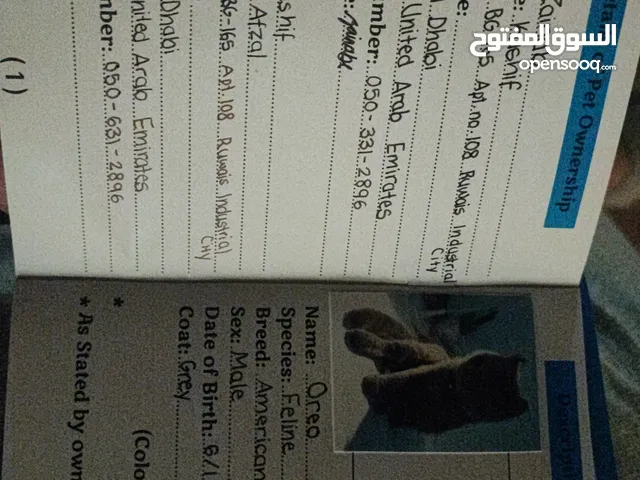 السوق المفتوح
opensooq.com
Pet Ownership
BG
Apt. no. 108 Ruwais Industrial
City
Dhabi
United Arab Emirates
mber: 050-331-2896
shif
Afzal
165 Apt. 108 Ruwais Industrial
City
Dhabi
nited Arab Emirates
mber: 050-631-2896
(1)
Name: Oreo
Species: Feline
Breed: American
Sex: Male
Date of Birth: 6/1
Coat: Grey
(Colo
*
* As Stated by own